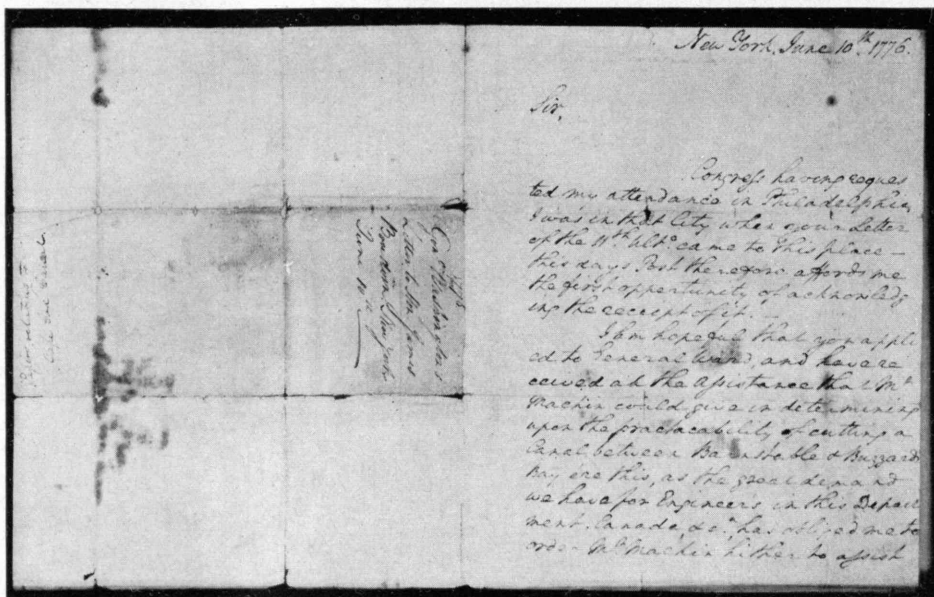 New York, June 10th. 1776.
Sir,
Congress having reques
ted my attendance in Philadelphia,
I was in that City when your Letter
of the 11th Ulto. came to this place —
this days Post therefore affords me
the first opportunity of acknowledg
ing the receipt of it. —
I am hopeful that you appli
ed to General Ward, and have re
ceived all the Assistance that Mr
Machin could give in determining
upon the practacability of cutting a
Canal between Barnstable & Buzzards
Bay ere this, as the great demand
we have for Engineers in this Depart
ment, Canada &ca. has obliged me to
order Mr Machin hither to assist
Genl Washingtons
Letter to Mr James
Bowdoin, New York
June 10
relative to